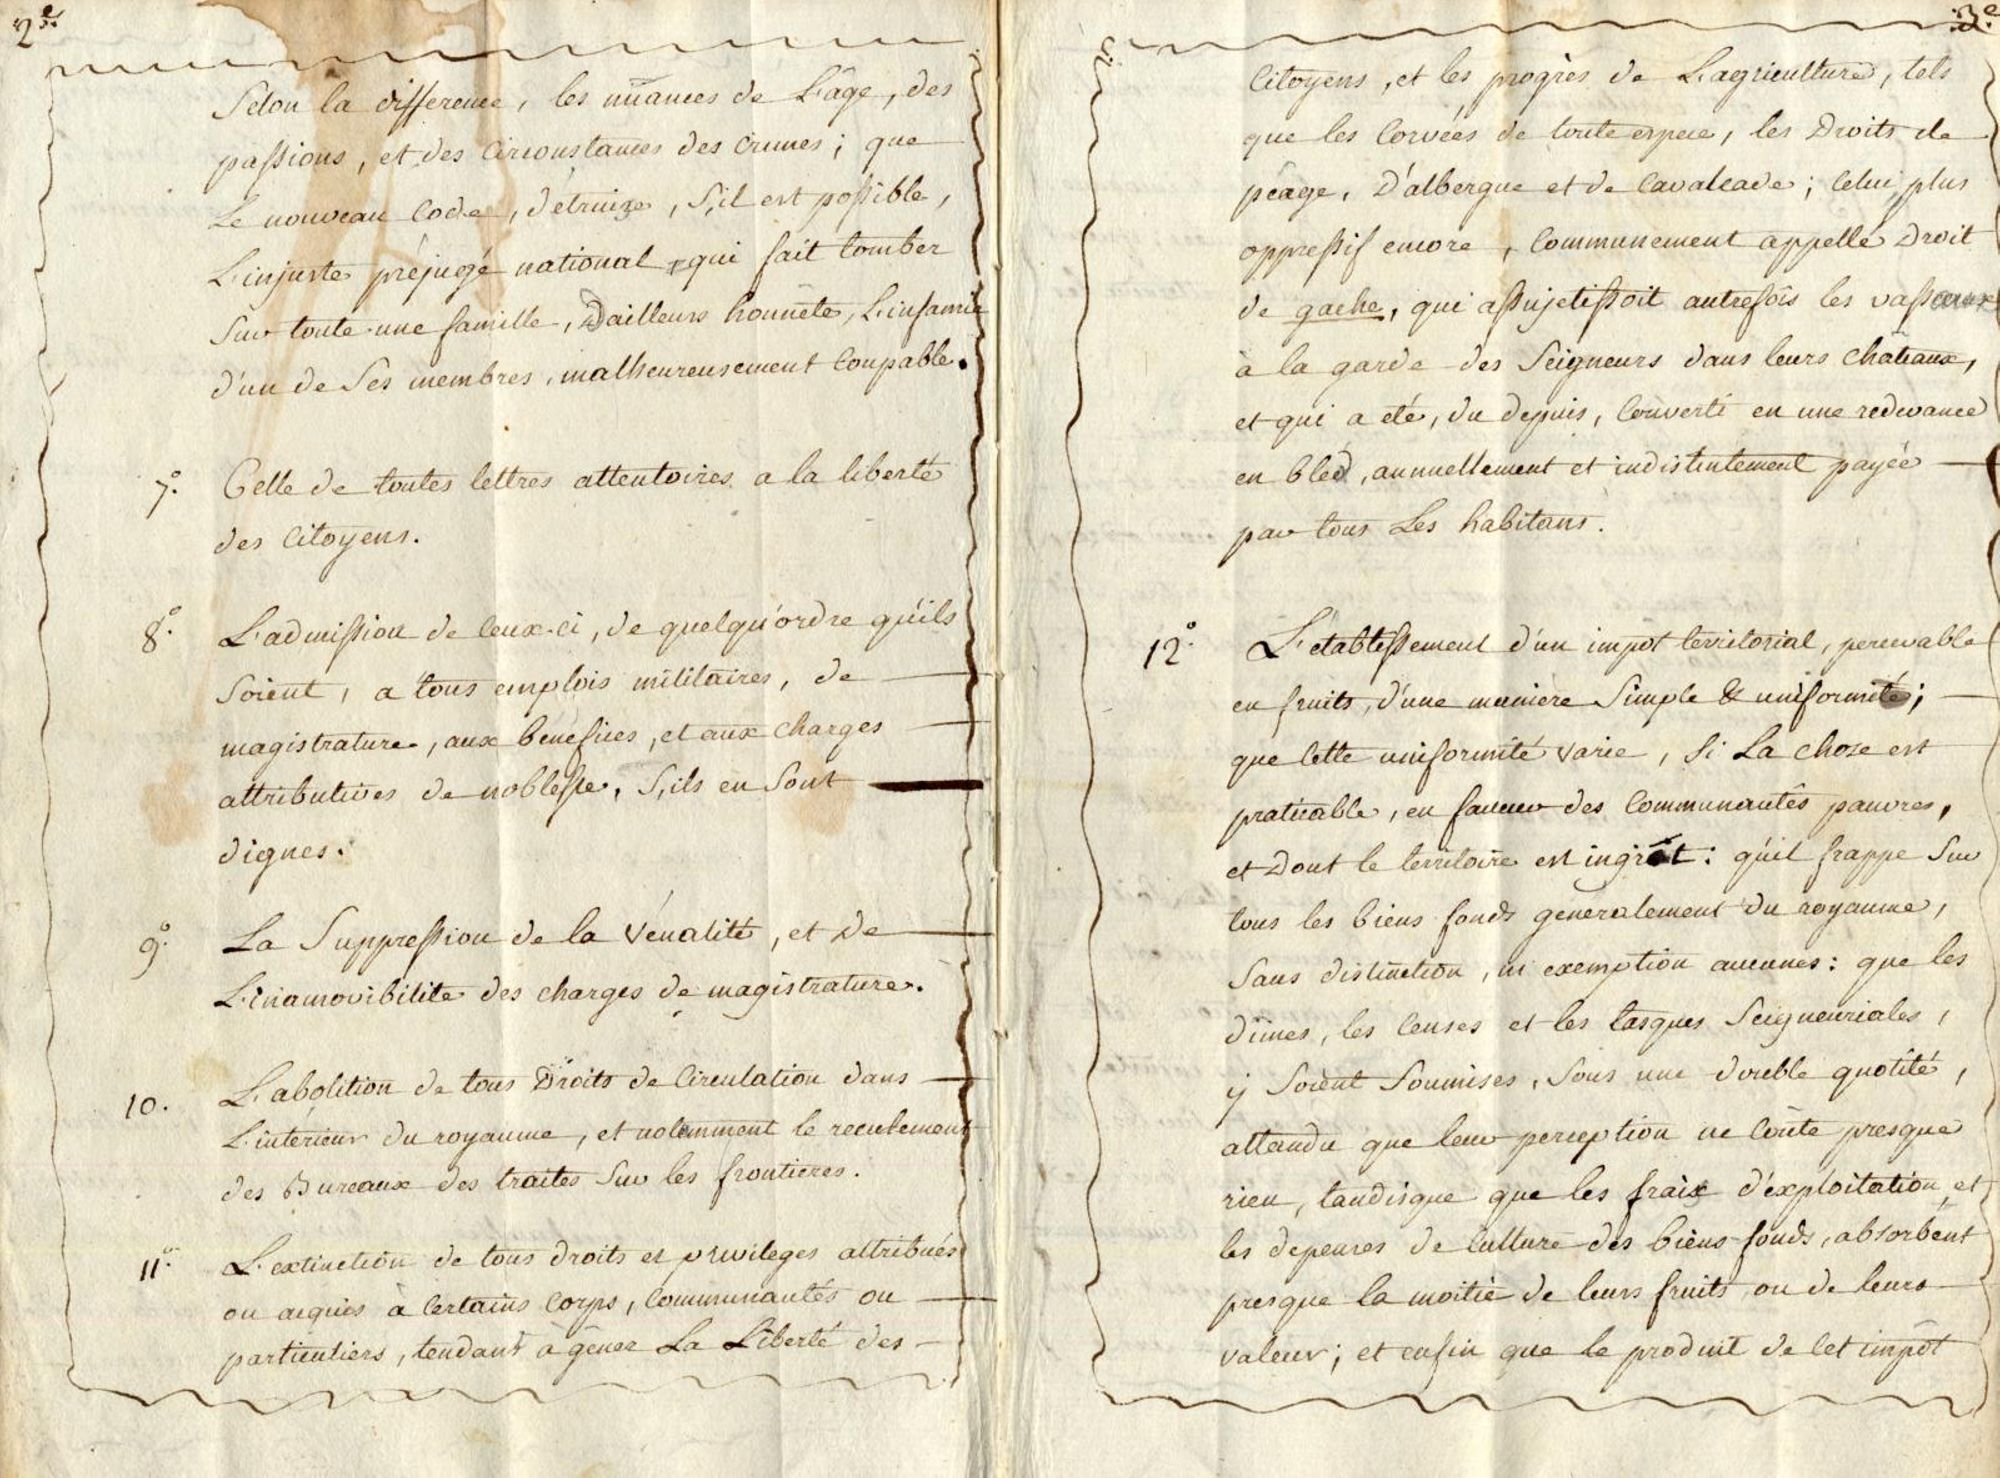 2e.
Selon la difference, les nüances de L'âge, des
passions, et des Circonstances des Crimes; que
Le nouveau Code, détruize, S'il est possible,
L'injuste préjugé national qui fait tomber
Sur toute une famille, Dailleurs honnête, L'infamie
d'un de Ses membres, malheureusement Coupable.
7°. Celle de toutes lettres attentoires a la liberté
des Citoyens.
8°. L'admission de Ceux-ci, de quelqu'ordre qu'ils
Soient, a tous emplois militaires, de
magistrature, aux bénéfices, et aux charges
attributives de noblesse, S'ils en Sont
dignes.
9°. La Suppression de la Vénalité, et De
L'inamovibilité des charges de magistrature.
10. L'abolition de tous Droits de Circulation dans
L'intérieur du royaume, et notamment le reculement
des Bureaux des traites Sur les frontieres.
11°. L'extinction de tous droits et privileges attribués
ou acquis à Certains Corps, Communautés ou
particuliers, tendant à gêner La Liberté des
3e.
Citoyens, et les progrès de L'agriculture, tels
que les Corvées de toute espece, les Droits de
péage, D'albergue et de Cavalcade; Celui plus
oppressif encore, Communement appellé Droit
de gache, qui assujetissoit autrefois les vassaux
à la garde des Seigneurs dans leurs châteaux,
et qui a eté, du depuis, Converti en une redevance
en bled, annuellement et indistintement payée
par tous Les habitans.
12°. L'établissement d'un impot territorial, percevable
en fruits, d'une maniere Simple & uniforme;
que Cette uniformité varie, Si La chose est
praticable, en faveur des Communautés pauvres,
et Dont le territoire est ingrat: qu'il frappe Sur
tous les biens fonds generalement du royaume,
Sans distinction, ni exemption aucunes: que les
dîmes, les Censes et les tasques Seigneuriales,
ÿ Soient Soumises, Sous une double quotité,
attendu que leur perception ne Coûte presque
rien, tandisque que les fraix d'exploitation et
les depenses de Culture des biens-fonds, absorbent
presque la moitié de leurs fruits ou de leurs
valeur; et enfin que le produit de Cet impôt